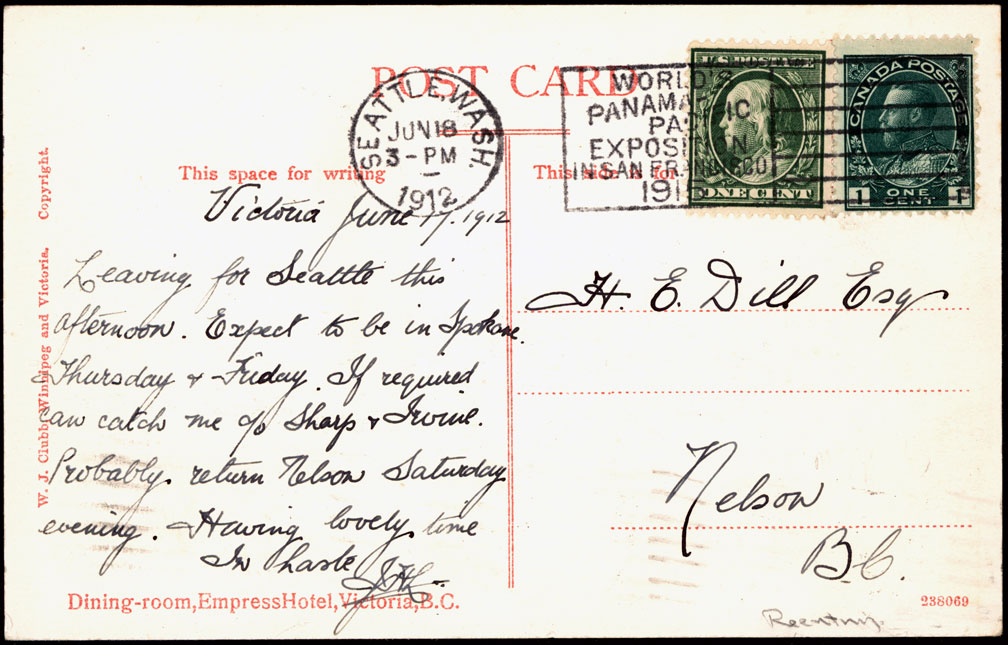 POST CARD
SEATTLE, WASH.
JUN 18
3-PM
1912
WORLD'S
PANAMA IC
PA
EXPOSI N
IN SAN FRANCISCO
1915
U.S. POSTAGE
ONE CENT
CANADA POSTAGE
1 ONE CENT 1
This space for writing
This side for
Victoria June 17, 1912
Leaving for Seattle this
afternoon. Expect to be in Spokane.
Thursday & Friday. If required
can catch me c/o Sharp & Irvine.
Probably return Nelson Saturday
evening. Having lovely time
In haste
H. E. Dill Esq
Nelson
B.C.
W. J. Clubb, Winnipeg and Victoria. Copyright.
Dining-room, Empress Hotel, Victoria, B.C.
238069